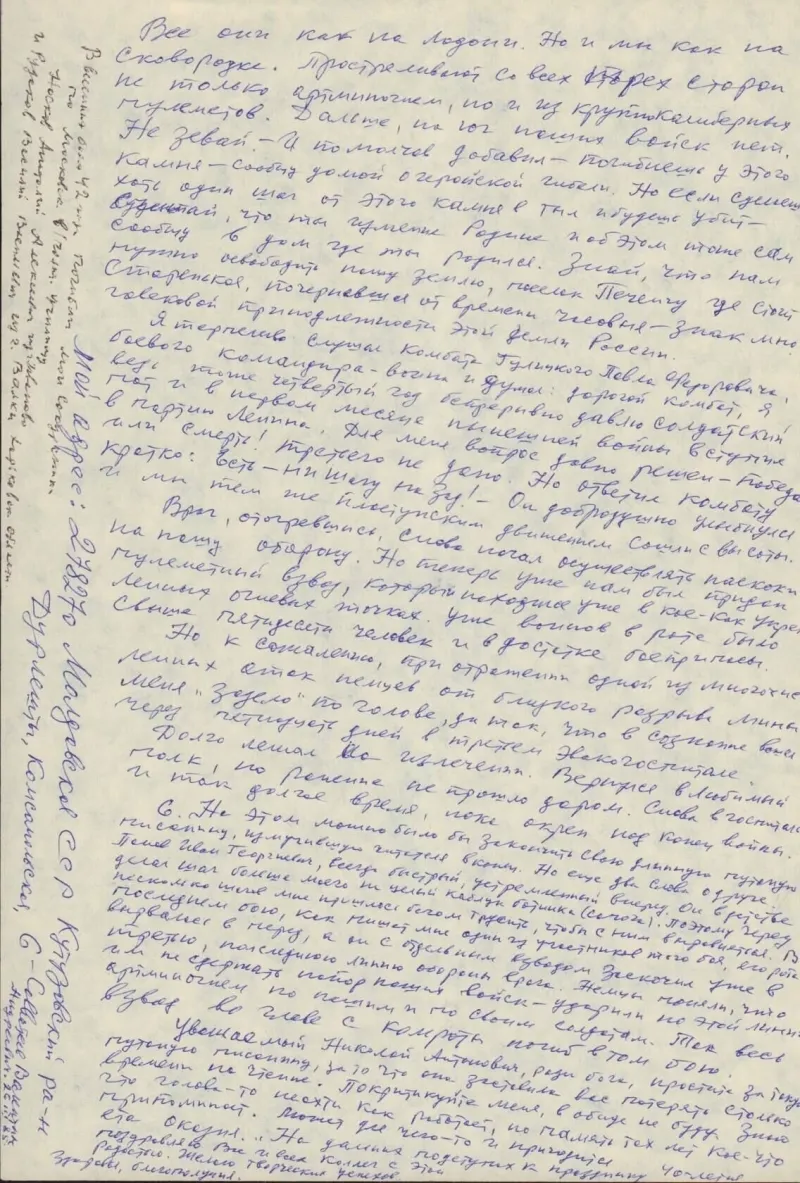 Все они как на ладони. Но и мы как на
сковородке. Простреливают со всех трех сторон
не только артминогнем, но и из крупнокалиберных
пулеметов. Дальше, на юг наших войск нет.
Не зевай. – И помолчав добавил – погибнешь у этого
камня – сообщу домой о геройской гибели. Но если сделаешь
хоть один шаг от этого камня в тыл и будешь убит –
что ты изменил Родине и об этом тоже сам
сообщу в дом где ты родился. Знай, что нам
нужно освободить нашу землю, поселок Печенгу где стоит
почерневшая от времени часовня – знак мно-
говековой принадлежности этой земли России.
Я терпеливо слушал комбата Гулицкого Павла Федоровича,
боевого командира – воина и думал: дорогой комбат, я
ведь тоже четвертый год беспрерывно давлю солдатский
пот и в первом месяце нынешней войны вступил
в партию Ленина. Для меня вопрос давно решен – победа
или смерть! Третьего не дано. Но ответил комбату
кратко: Есть – ни шагу назад! – Он добродушно улыбнулся
и мы тем же пластунским движением сошли с высоты.
Враг, отогревшись, снова начал осуществлять наскоки
на нашу оборону. Но теперь уже нам был придан
пулеметный взвод, который находился уже в кое-как укреп-
ленных огневых точках. Уже воинов в роте было
свыше пятидесяти человек и в достатке боеприпасы.
Но к сожалению, при отражении одной из многочис-
ленных атак немцев от близкого разрыва мины
меня "задело" по голове, да так, что в сознание вошел
через четырнадцать дней в третьем эвакогоспитале.
Долго лежал на излечении. Вернулся в любимый
полк, но ранение не прошло даром. Снова в госпиталь
и так долгое время, пока окреп под конец войны.
6. На этом можно было бы закончить свою длинную путаную
писанину, измучившую читателя вконец. Но еще два слова о друге.
Попов Иван Георгиевич, всегда быстрый, устремленный вперед. Он в детстве
делал шаг больше моего на целый каблук ботинка (сапога). Поэтому через
несколько шагов мне пришлось бегом трусить, чтобы с ним выровняться. В
последнем бою, как пишет мне один из участников того боя, его рота
вырвалась вперед, а он с отдельным взводом заскочил уже в
третью, последнюю линию обороны врага. Немцы поняли, что
им не сдержать напор наших войск – ударили по этой линии
артминогнем по нашим и по своим солдатам. Так весь
взвод во главе с комроты погиб в том бою.
Уважаемый Николай Антонович, ради бога, простите за такую
путаную писанину, за то что она заставила Вас потерять столько
времени на чтение. Покритикуйте меня, в обиде не буду. Знаю
что голова-то неахти как работает, но память тех лет кое-что
припоминает. Может где чего-то и пригодится
На дальних подступах к празднику 40-летия
поздравляю Вас и всех коллег с этой
радостью. Желаю творческих успехов
Здоровья, благополучия.
В начале 42 г. погибли мои сокурсники
по Моск. в. училищу
Носков Анатолий Алексеевич
и Рудаков Василий Васильевич из г. Валки Харьковск. области
Мой адрес: 278270 Молдавская ССР Кутузовский ра-н
Дурлешты, Комсомольская, 6 –